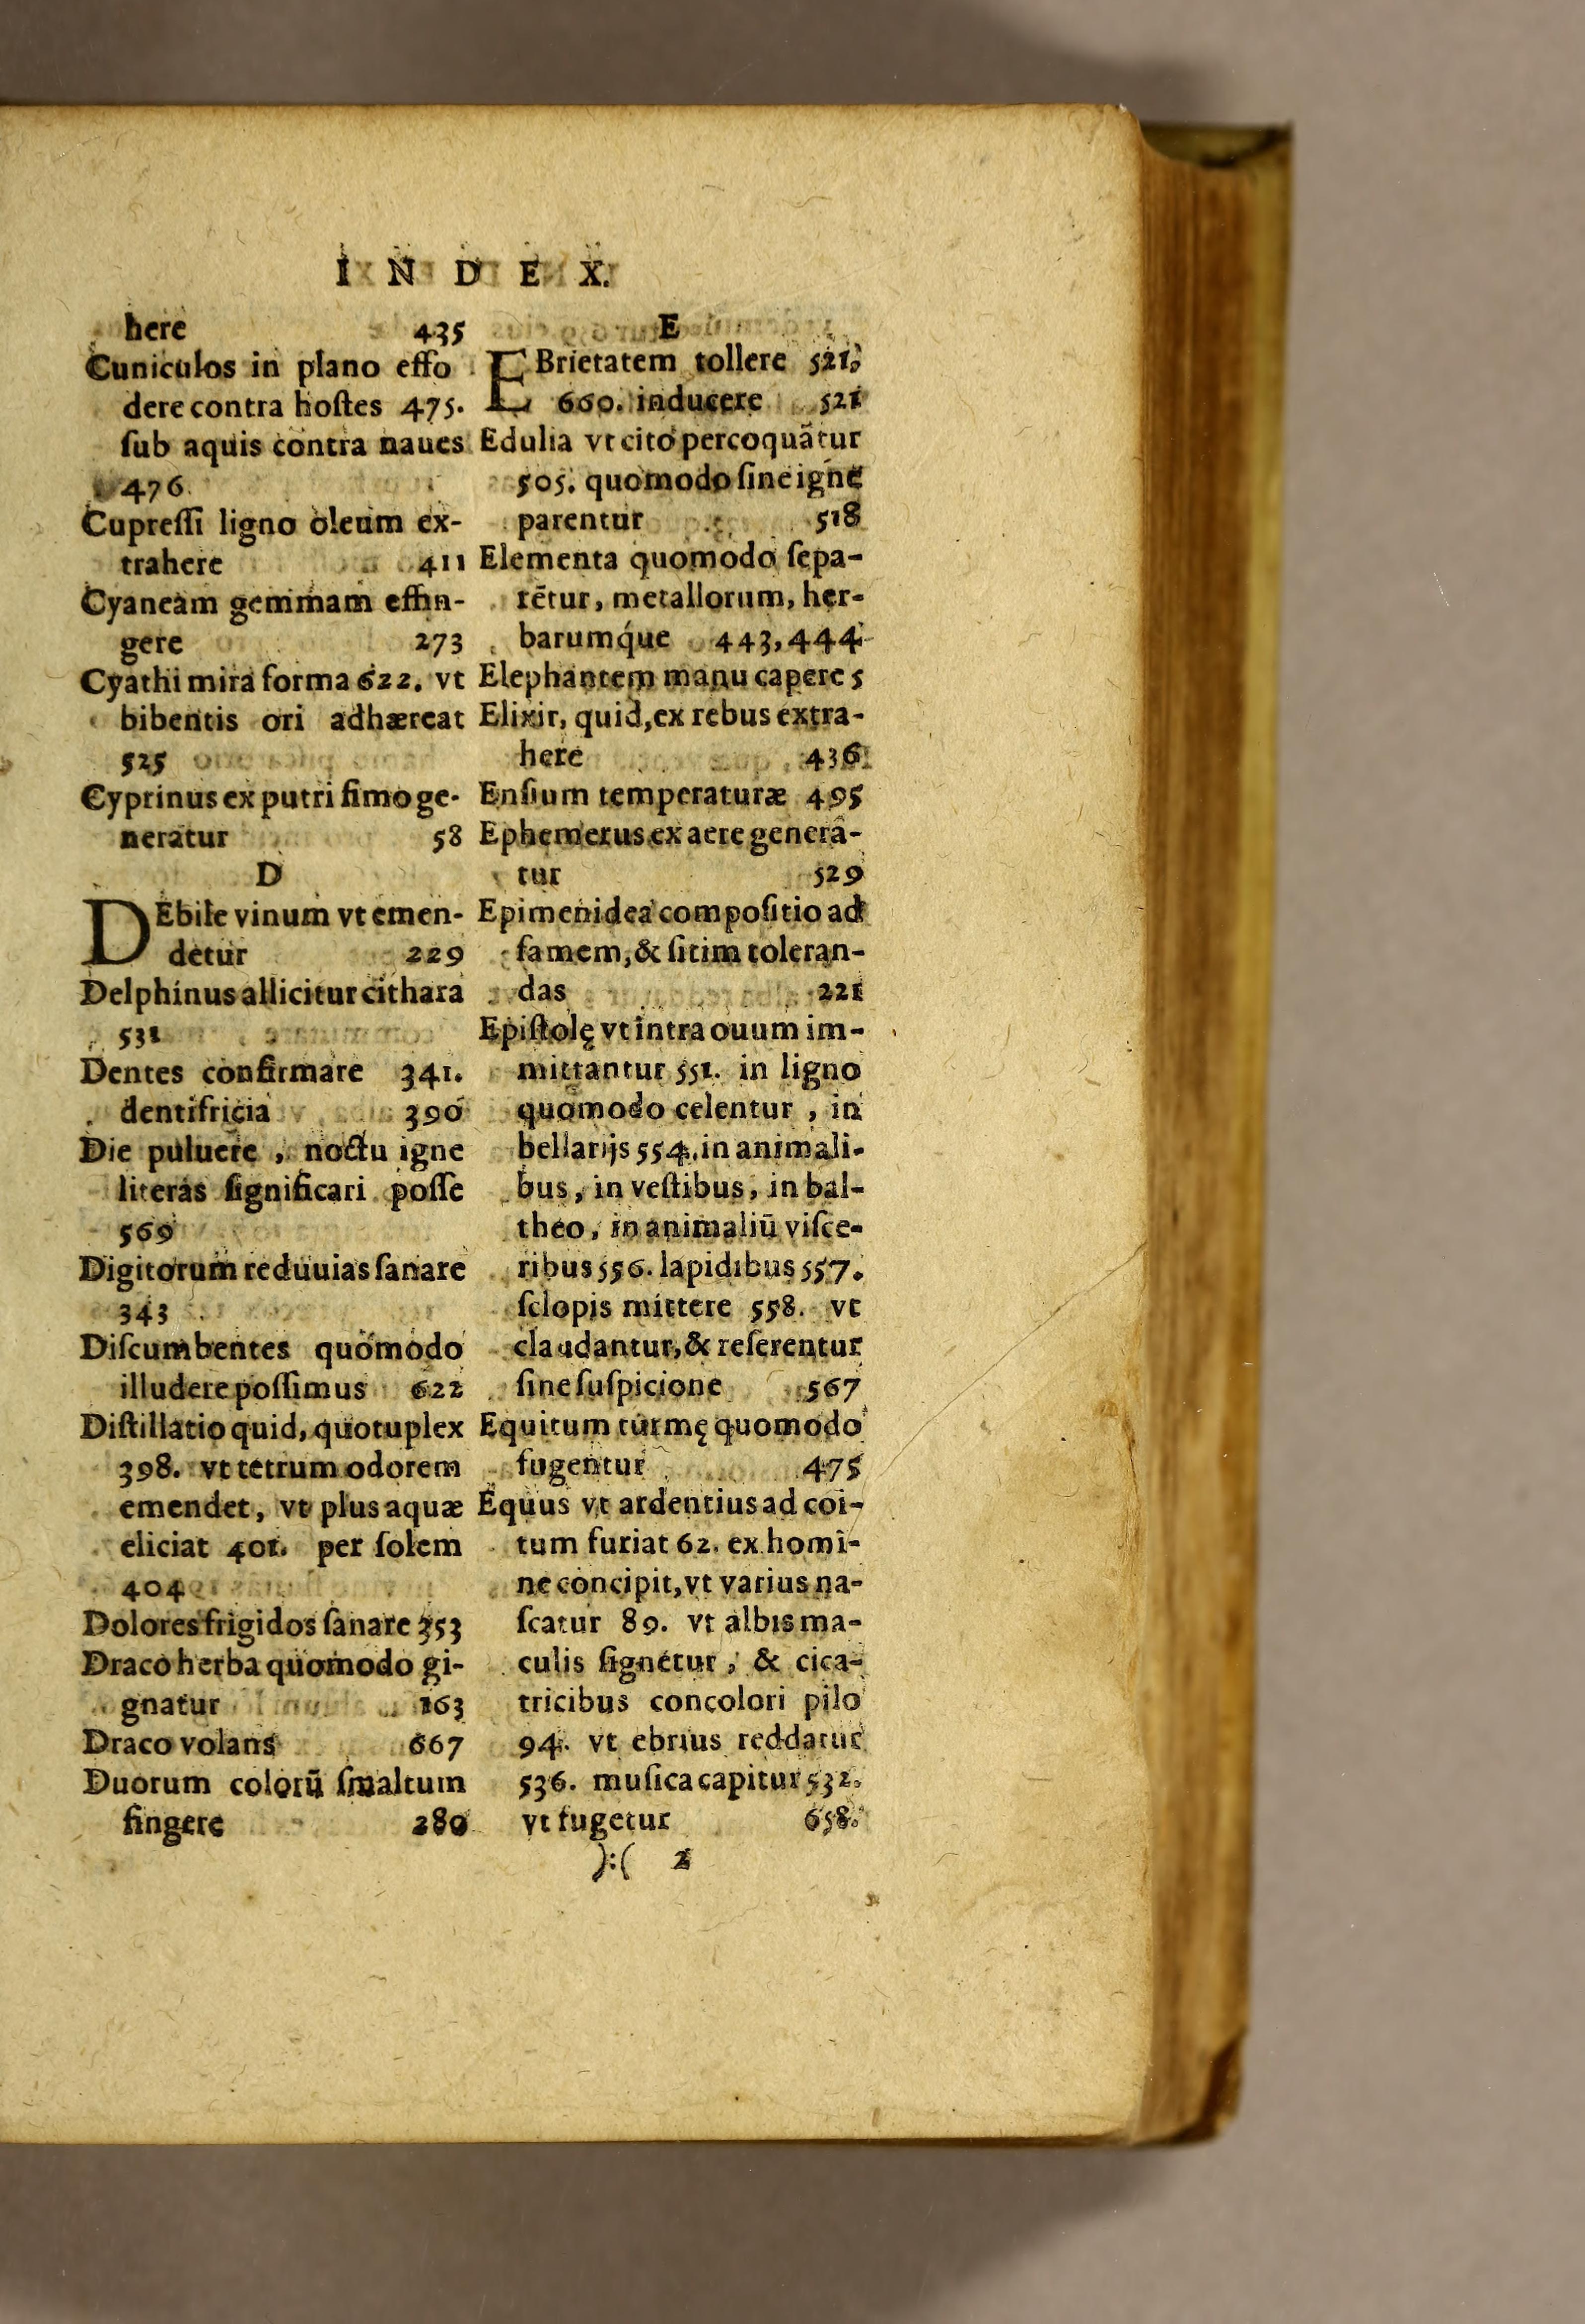 INDEX.
here 435
Cuniculos in plano effo
dere contra hoſtes 475.
ſub aquis contra naues
476
Cupreſſi ligno oleum ex-
trahere 411
Cyaneam gemmam effin-
gere 273
Cyathi mira forma 622. vt
bibentis ori adhæreat
525
Cyprinus ex putri fimo ge-
neratur 58
D
DEbile vinum vt emen-
detur 229
Delphinus allicitur cithara
531
Dentes confirmare 341.
dentifricia 390
Die puluere , noctu igne
literas ſignificari poſſe
569
Digitorum reduuias ſanare
343
Diſcumbentes quomodo
illudere poſſimus 622
Diſtillatio quid, quotuplex
398. vt tetrum odorem
emendet, vt plus aquæ
eliciat 401. per ſolem
404
Dolores frigidos ſanare 353
Draco herba quomodo gi-
gnatur 163
Draco volans 667
Duorum colorū ſmaltum
fingere 280
E
EBrietatem tollere 521,
660. inducere 521
Edulia vt cito percoquātur
505. quomodo ſine igne
parentur 518
Elementa quomodo ſepa-
rētur, metallorum, her-
barumq́ue 443, 444
Elephantem manu capere 5
Elixir, quid, ex rebus extra-
here 436
Enſium temperaturæ 495
Ephemerus ex aere genera-
tur 529
Epimenidea compoſitio ad
famem, & ſitim toleran-
das 221
Epiſtolę vt intra ouum im-
mittantur 551. in ligno
quomodo celentur , in
bellarijs 554. in animali-
bus, in veſtibus, in bal-
theo, in animaliū viſce-
ribus 556. lapidibus 557.
ſclopis mittere 558. vt
claudantur, & reſerentur
ſine ſuſpicione 567
Equitum turmę quomodo
fugentur 475
Equus vt ardentius ad coi-
tum furiat 62. ex homi-
ne concipit, vt varius na-
ſcatur 89. vt albis ma-
culis ſignetur, & cica-
tricibus concolori pilo
94. vt ebrius reddatur
536. muſica capitur 532.
vt fugetur 658.
):( 2